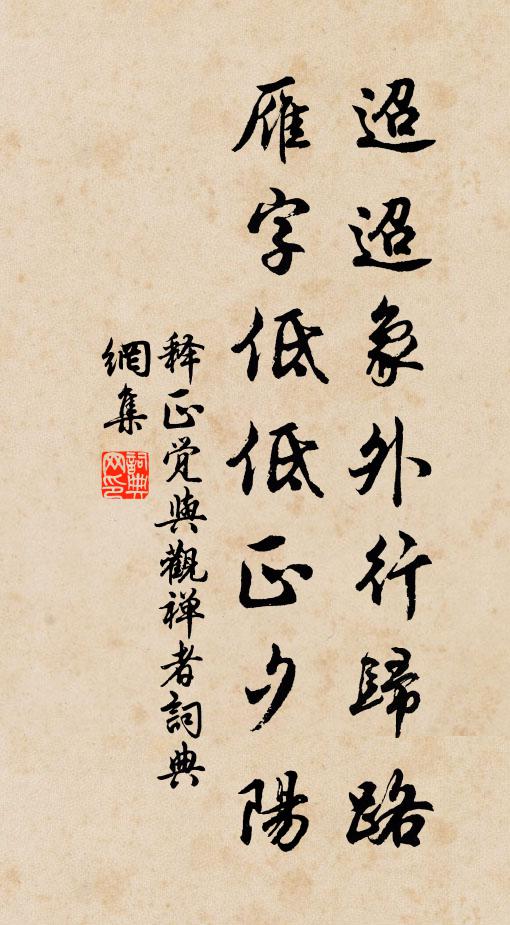 迢迢象外行歸路
雁字低低正夕陽
释正觉與觀禅者詞典
網集
詞典網印